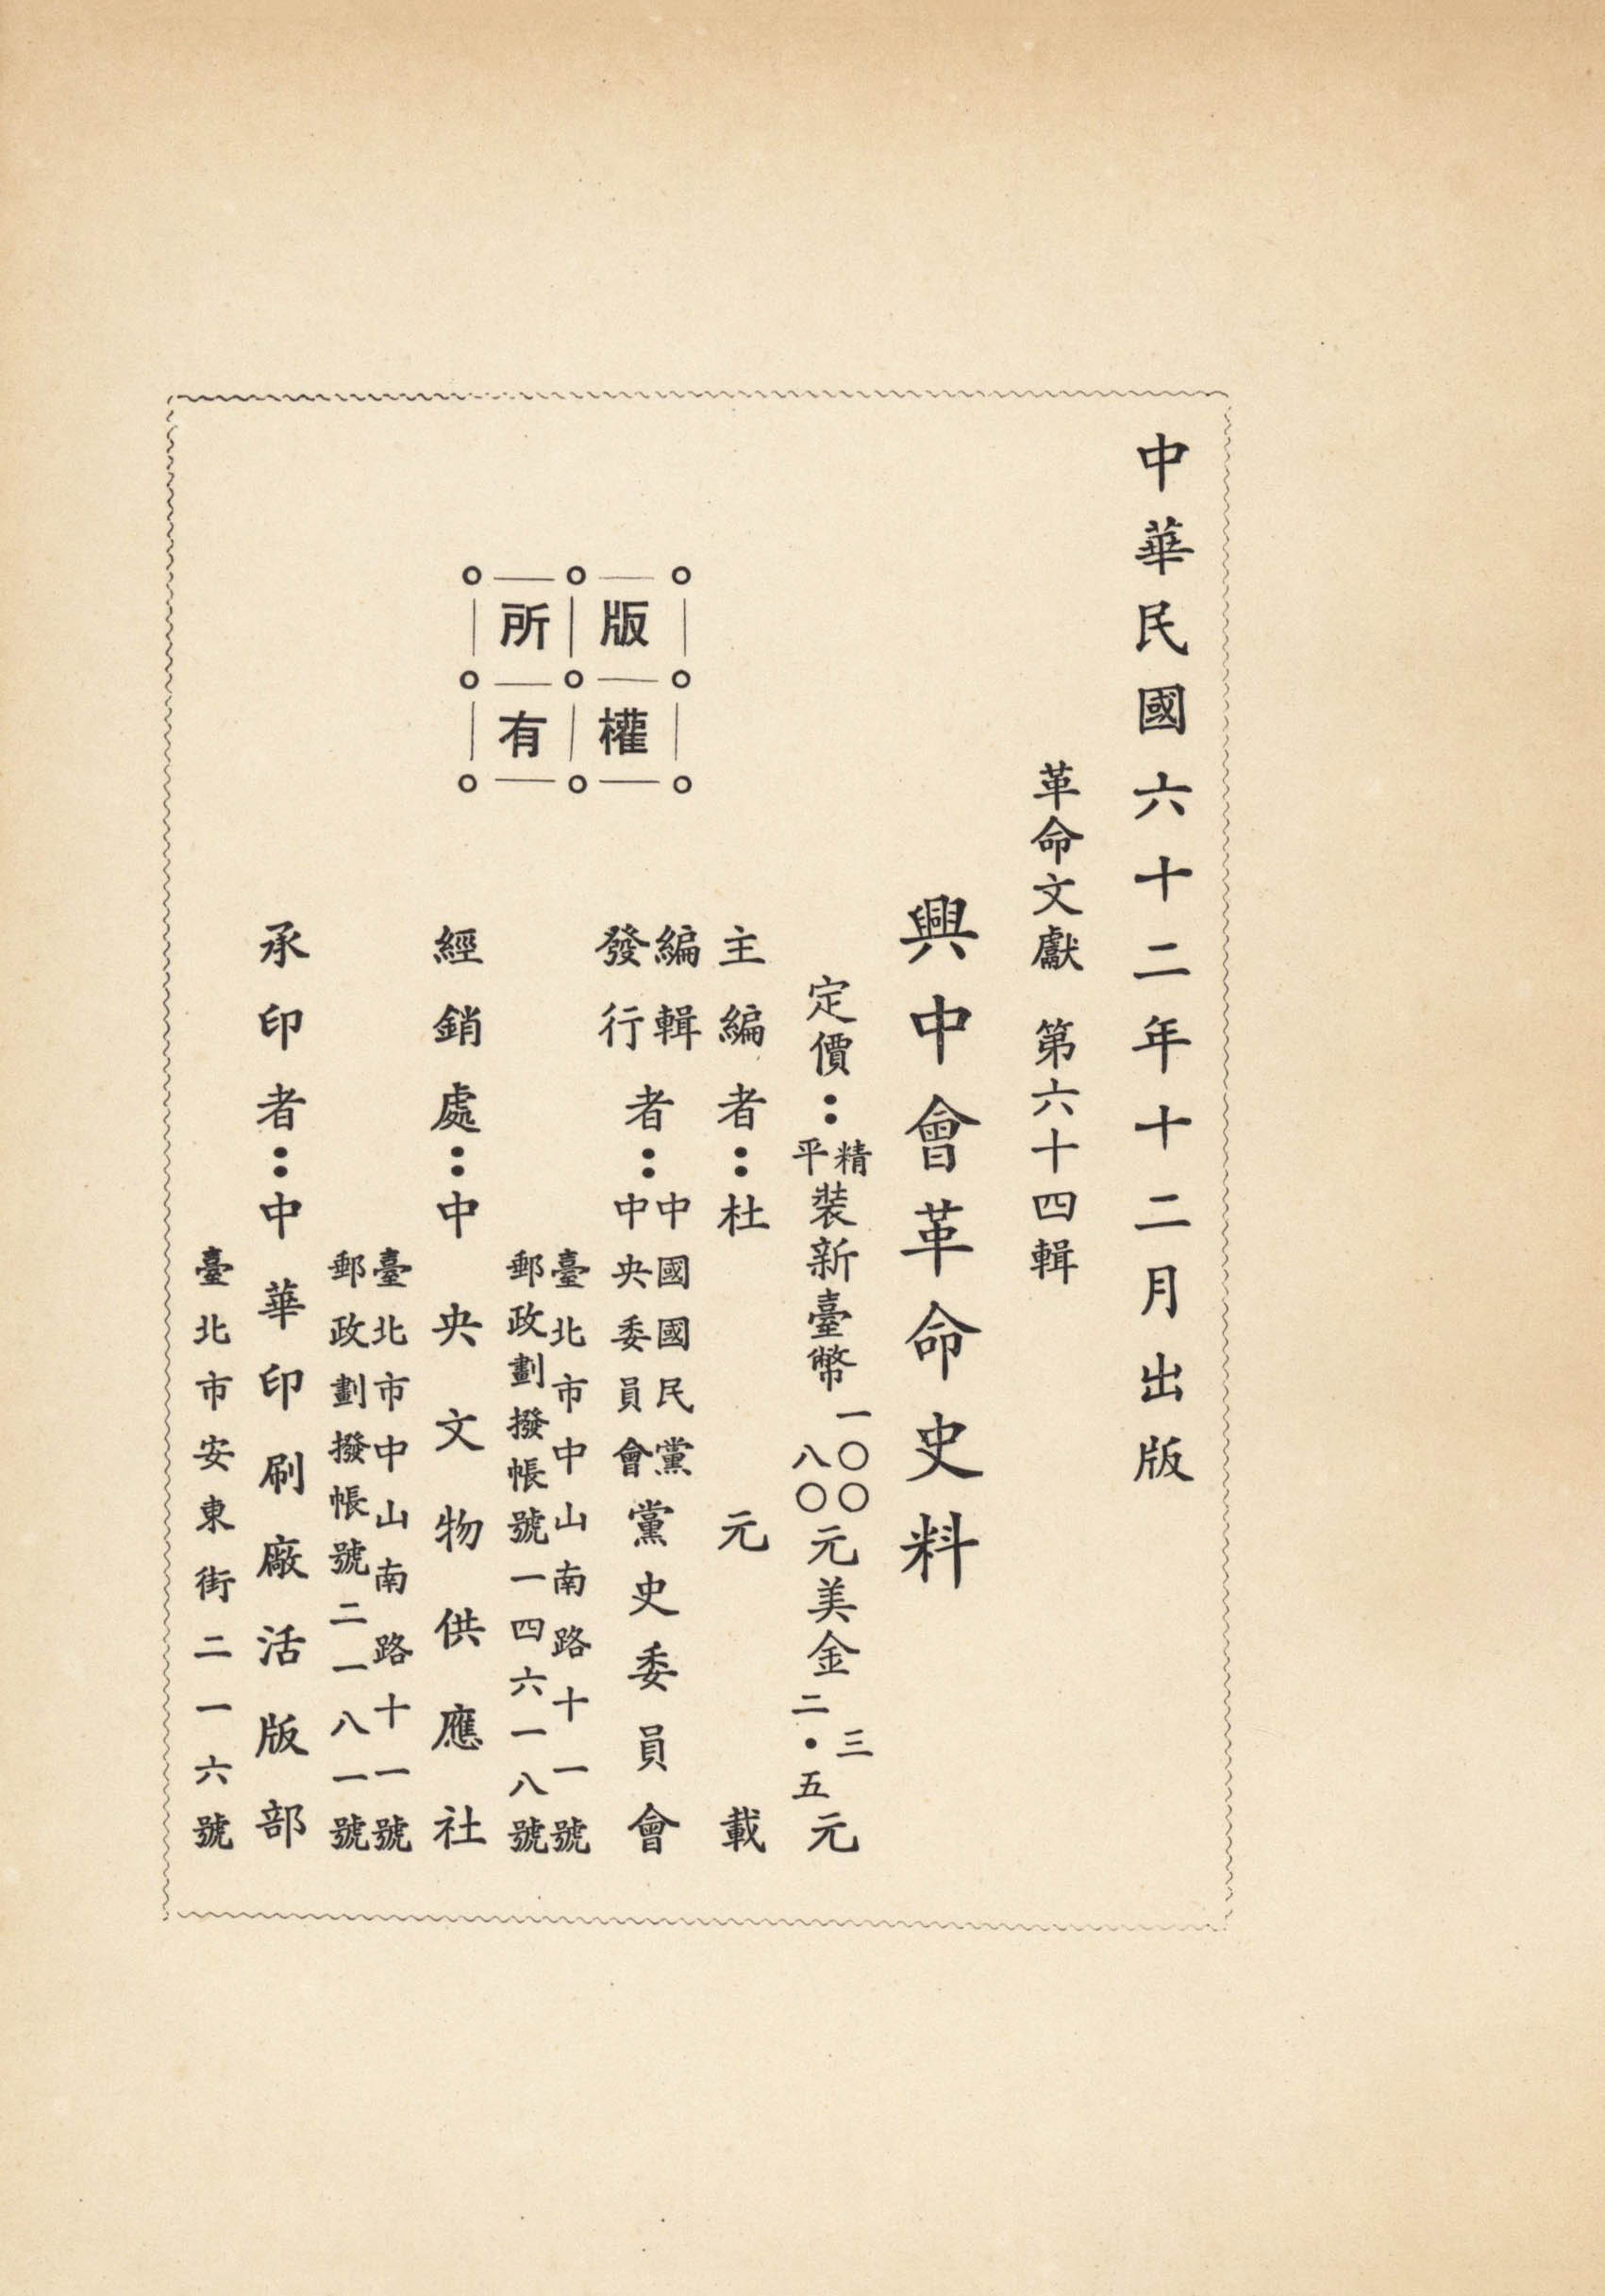 中華民國六十二年十二月出版
革命文獻 第六十四輯
興中會革命史料
定價：精平裝新臺幣一〇〇八〇元美金三二・五元
主編者：杜元載
編輯發行者：中國國民黨中央委員會黨史委員會
臺北市中山南路十一號
郵政劃撥帳號一四六一八號
經銷處：中央文物供應社
臺北市中山南路十一號
郵政劃撥帳號二一八一號
承印者：中華印刷廠活版部
臺北市安東街二一六號
版權
所有